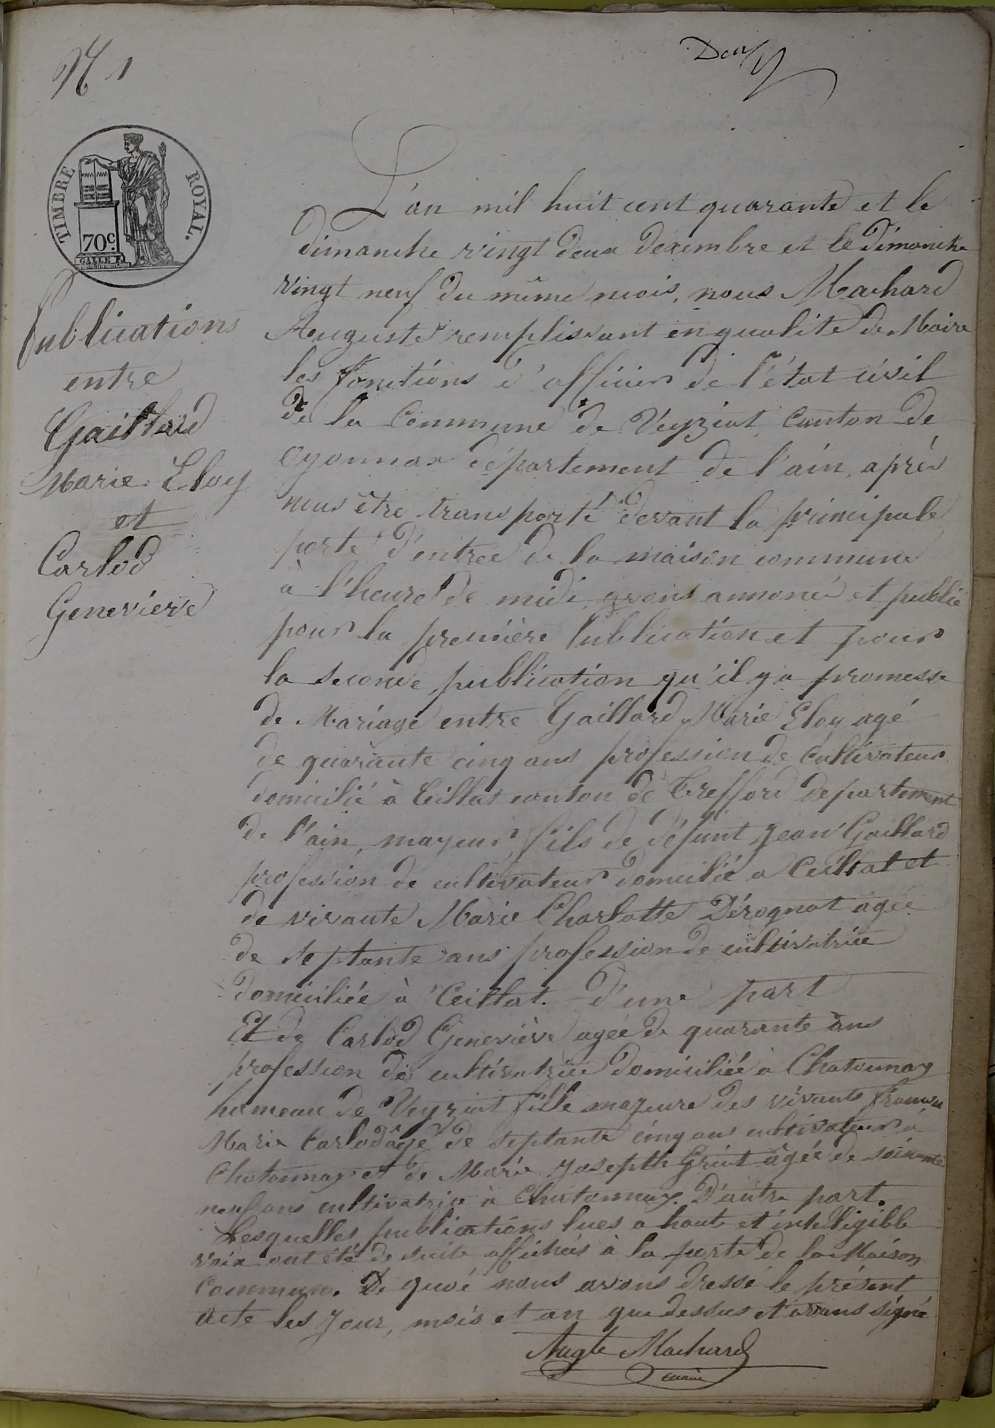 N 1
Deux
TIMBRE ROYAL.
70c.
Publications
entre
Gaillard
Marie Eloy
et
Carlod
Genevieve
L'an mil huit cent quarante et le
dimanche vingt deux decembre et le Dimanche
vingt neuf du même mois, nous Machard
Auguste remplissant en qualité de Maire
les fonctions d'officier de l'état civil
de la Commune de Veyziat Canton de
Oyonnax département de l'ain, après
nous être transporté devant la principale
porte d'entrée de la maison commune
à l'heure de midi, avons annoncé et publié
pour la première Publication et pour
la seconde publication qu'il y a promesse
de Mariage entre Gaillard Marie Eloy agé
de quarante cinq ans profession de cultivateur
domicilié à Ceillat canton de Trefford departement
de l'ain, mayeur fils de défunt Jean Gaillard
profession de cultivateur domicilié a Ceillat et
de vivante Marie Charlotte Dérognat agée
de septante ans profession de cultivatrice
domiciliée à Ceillat. d'une part
Et de Carlod Geneviève agée de quarante ans
profession de cultivatrice domiciliée à Chatonnay
hameau de Veyziat fille mazeure des vivants
Marie Carlod âgé de septante cinq ans cultivateur à
Chatonnay et de Marie Joseph âgée de soixante
neuf ans cultivatrice à Chatonnay. D'autre part.
Lesquelles publications lues a haute et inteligible
voix ont été de suite affichés à la porte de la Maison
Commune. De quoi nous avons dressé le présent
acte les Jour, mois et an que dessus et avons signé
Augte Machard
maire